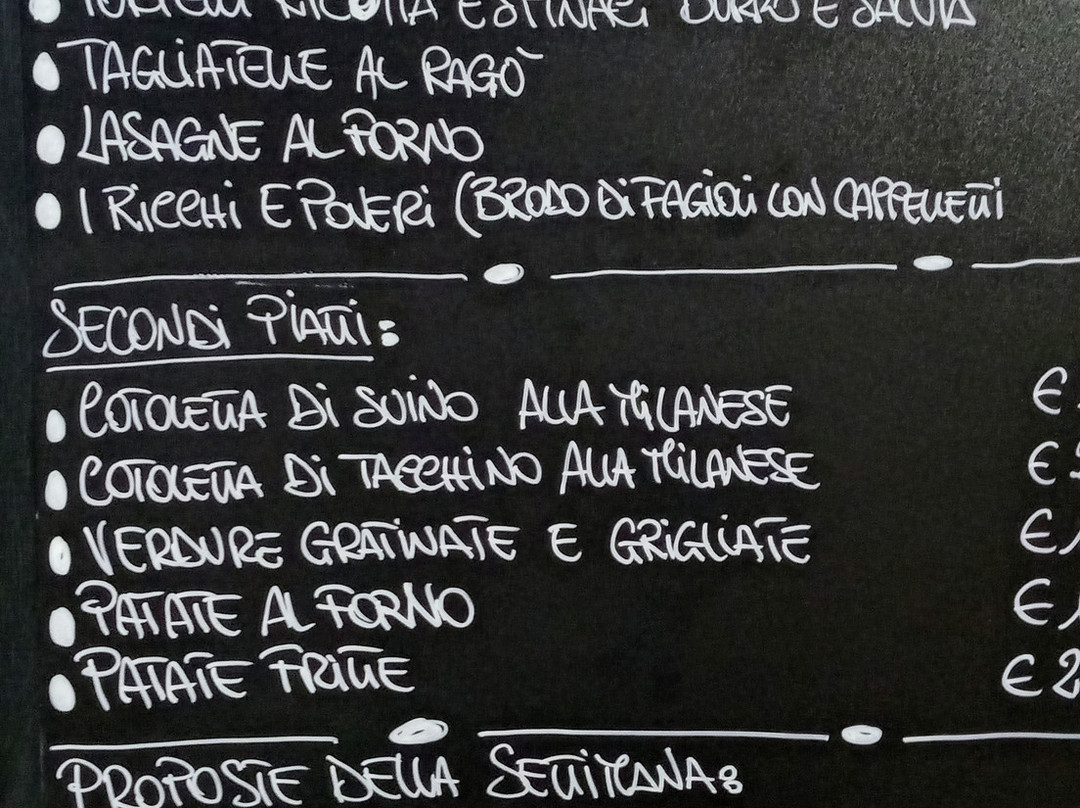 TORTELLI RICOTTA E SPINACI BURRO E SALVIA
• TAGLIATELLE AL RAGÒ
• LASAGNE AL FORNO
• I RICCHI E POVERI (BRODO DI FAGIOLI CON CAPPELLETTI
SECONDI PIATTI:
• COTOLETTA DI SUINO ALLA MILANESE €
• COTOLETTA DI TACCHINO ALLA MILANESE €
• VERDURE GRATINATE E GRIGLIATE €
• PATATE AL FORNO €
• PATATE FRITTE € 2
PROPOSTE DELLA SETTIMANA: